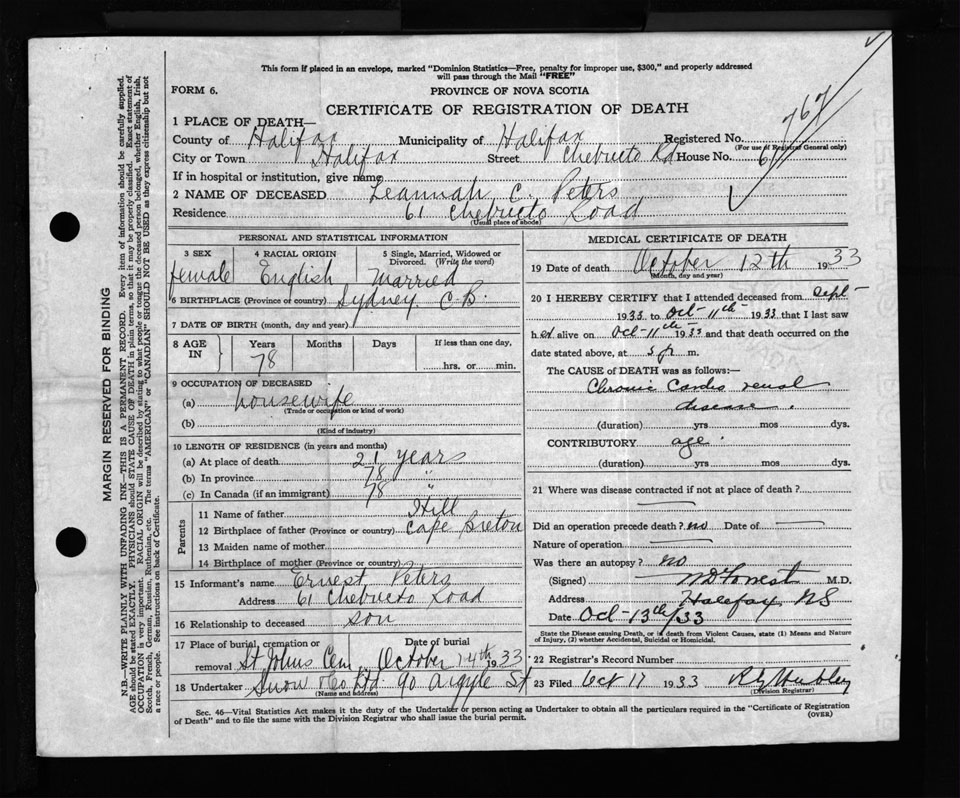 This form if placed in an envelope, marked "Dominion Statistics—Free, penalty for improper use, $300," and properly addressed
will pass through the Mail "FREE"
FORM 6.
PROVINCE OF NOVA SCOTIA
CERTIFICATE OF REGISTRATION OF DEATH
1 PLACE OF DEATH—
County of Halifax Municipality of Halifax Registered No. 767
(For use of Registrar General only)
City or Town Halifax Street Chebucto Rd House No. 61
If in hospital or institution, give name
2 NAME OF DECEASED Leannah C. Peters
Residence 61 Chebucto Road
(Usual place of abode)
PERSONAL AND STATISTICAL INFORMATION
3 SEX 4 RACIAL ORIGIN 5 Single, Married, Widowed or
Divorced. (Write the word)
female English Married
6 BIRTHPLACE (Province or country) Sydney C.B.
7 DATE OF BIRTH (month, day and year)
8 AGE IN Years Months Days If less than one day,
78 hrs. or min.
9 OCCUPATION OF DECEASED
(a) housewife
(Trade or occupation or kind of work)
(b)
(Kind of industry)
10 LENGTH OF RESIDENCE (in years and months)
(a) At place of death 21 years
(b) In province 78 "
(c) In Canada (if an immigrant) 78
Parents
11 Name of father Hill
12 Birthplace of father (Province or country) Cape Breton
13 Maiden name of mother
14 Birthplace of mother (Province or country)
15 Informant's name Ernest Peters
Address 61 Chebucto Road
16 Relationship to deceased son
17 Place of burial, cremation or Date of burial
removal St Johns Cem. October 14th 1933
18 Undertaker Snow & Co Ltd. 90 Argyle St
(Name and address)
MEDICAL CERTIFICATE OF DEATH
19 Date of death October 12th 1933
(Month, day and year)
20 I HEREBY CERTIFY that I attended deceased from Sept-
1933 to Oct-11th 1933 that I last saw
her alive on Oct-11th 1933 and that death occurred on the
date stated above, at 5 p. m.
The CAUSE of DEATH was as follows:—
Chronic Cardio renal
disease.
(duration) yrs mos dys.
CONTRIBUTORY age.
(duration) yrs mos dys.
21 Where was disease contracted if not at place of death?
Did an operation precede death? no Date of —
Nature of operation —
Was there an autopsy? no
(Signed) M.D.
Address Halifax NS
Date Oct-13th/33
State the Disease causing Death, or in death from Violent Causes, state (1) Means and Nature
of Injury, (2) whether Accidental, Suicidal or Homicidal.
22 Registrar's Record Number
23 Filed Oct 17 1933
(Division Registrar)
Sec. 46—Vital Statistics Act makes it the duty of the Undertaker or person acting as Undertaker to obtain all the particulars required in the "Certificate of Registration
of Death" and to file the same with the Division Registrar who shall issue the burial permit.
(OVER)
MARGIN RESERVED FOR BINDING
N.B.—WRITE PLAINLY WITH UNFADING INK—THIS IS A PERMANENT RECORD. Every item of information should be carefully supplied.
AGE should be stated EXACTLY. PHYSICIANS should STATE CAUSE OF DEATH in plain terms, so that it may be properly classified. Exact statement of
OCCUPATION is very important. RACIAL ORIGIN will be described by stating to what people or tongue the deceased person belonged, whether English, Irish,
Scotch, French, German, Russian, Ruthenian, etc. The terms "AMERICAN" or "CANADIAN" SHOULD NOT BE USED as they express citizenship but not
a race or people. See instructions on back of Certificate.